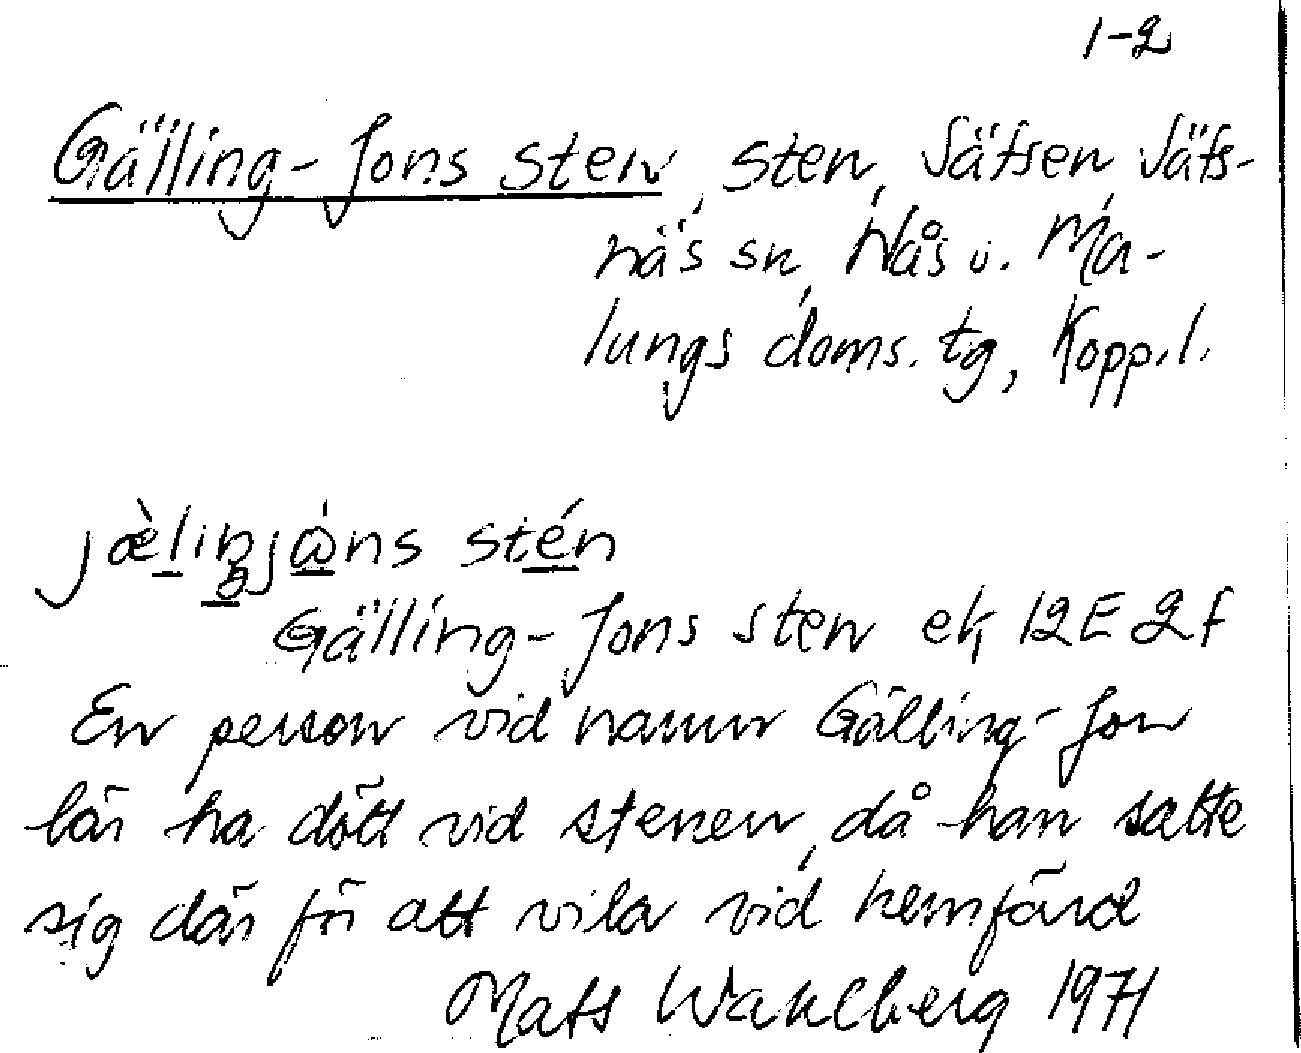 1-2
Gälling-Jons sten, sten, Säfsen, Säfs-
näs sn, Nås o. Ma-
lungs doms. tg, Kopp.l.
jæ̀liŋjɷ̀ns stén
Gälling-Jons sten ek, 12E 2f
En person vid namn Gälling-Jon
lär ha dött vid stenen, då han satte
sig där för att vila vid hemfärd
Mats Wahlberg 1971